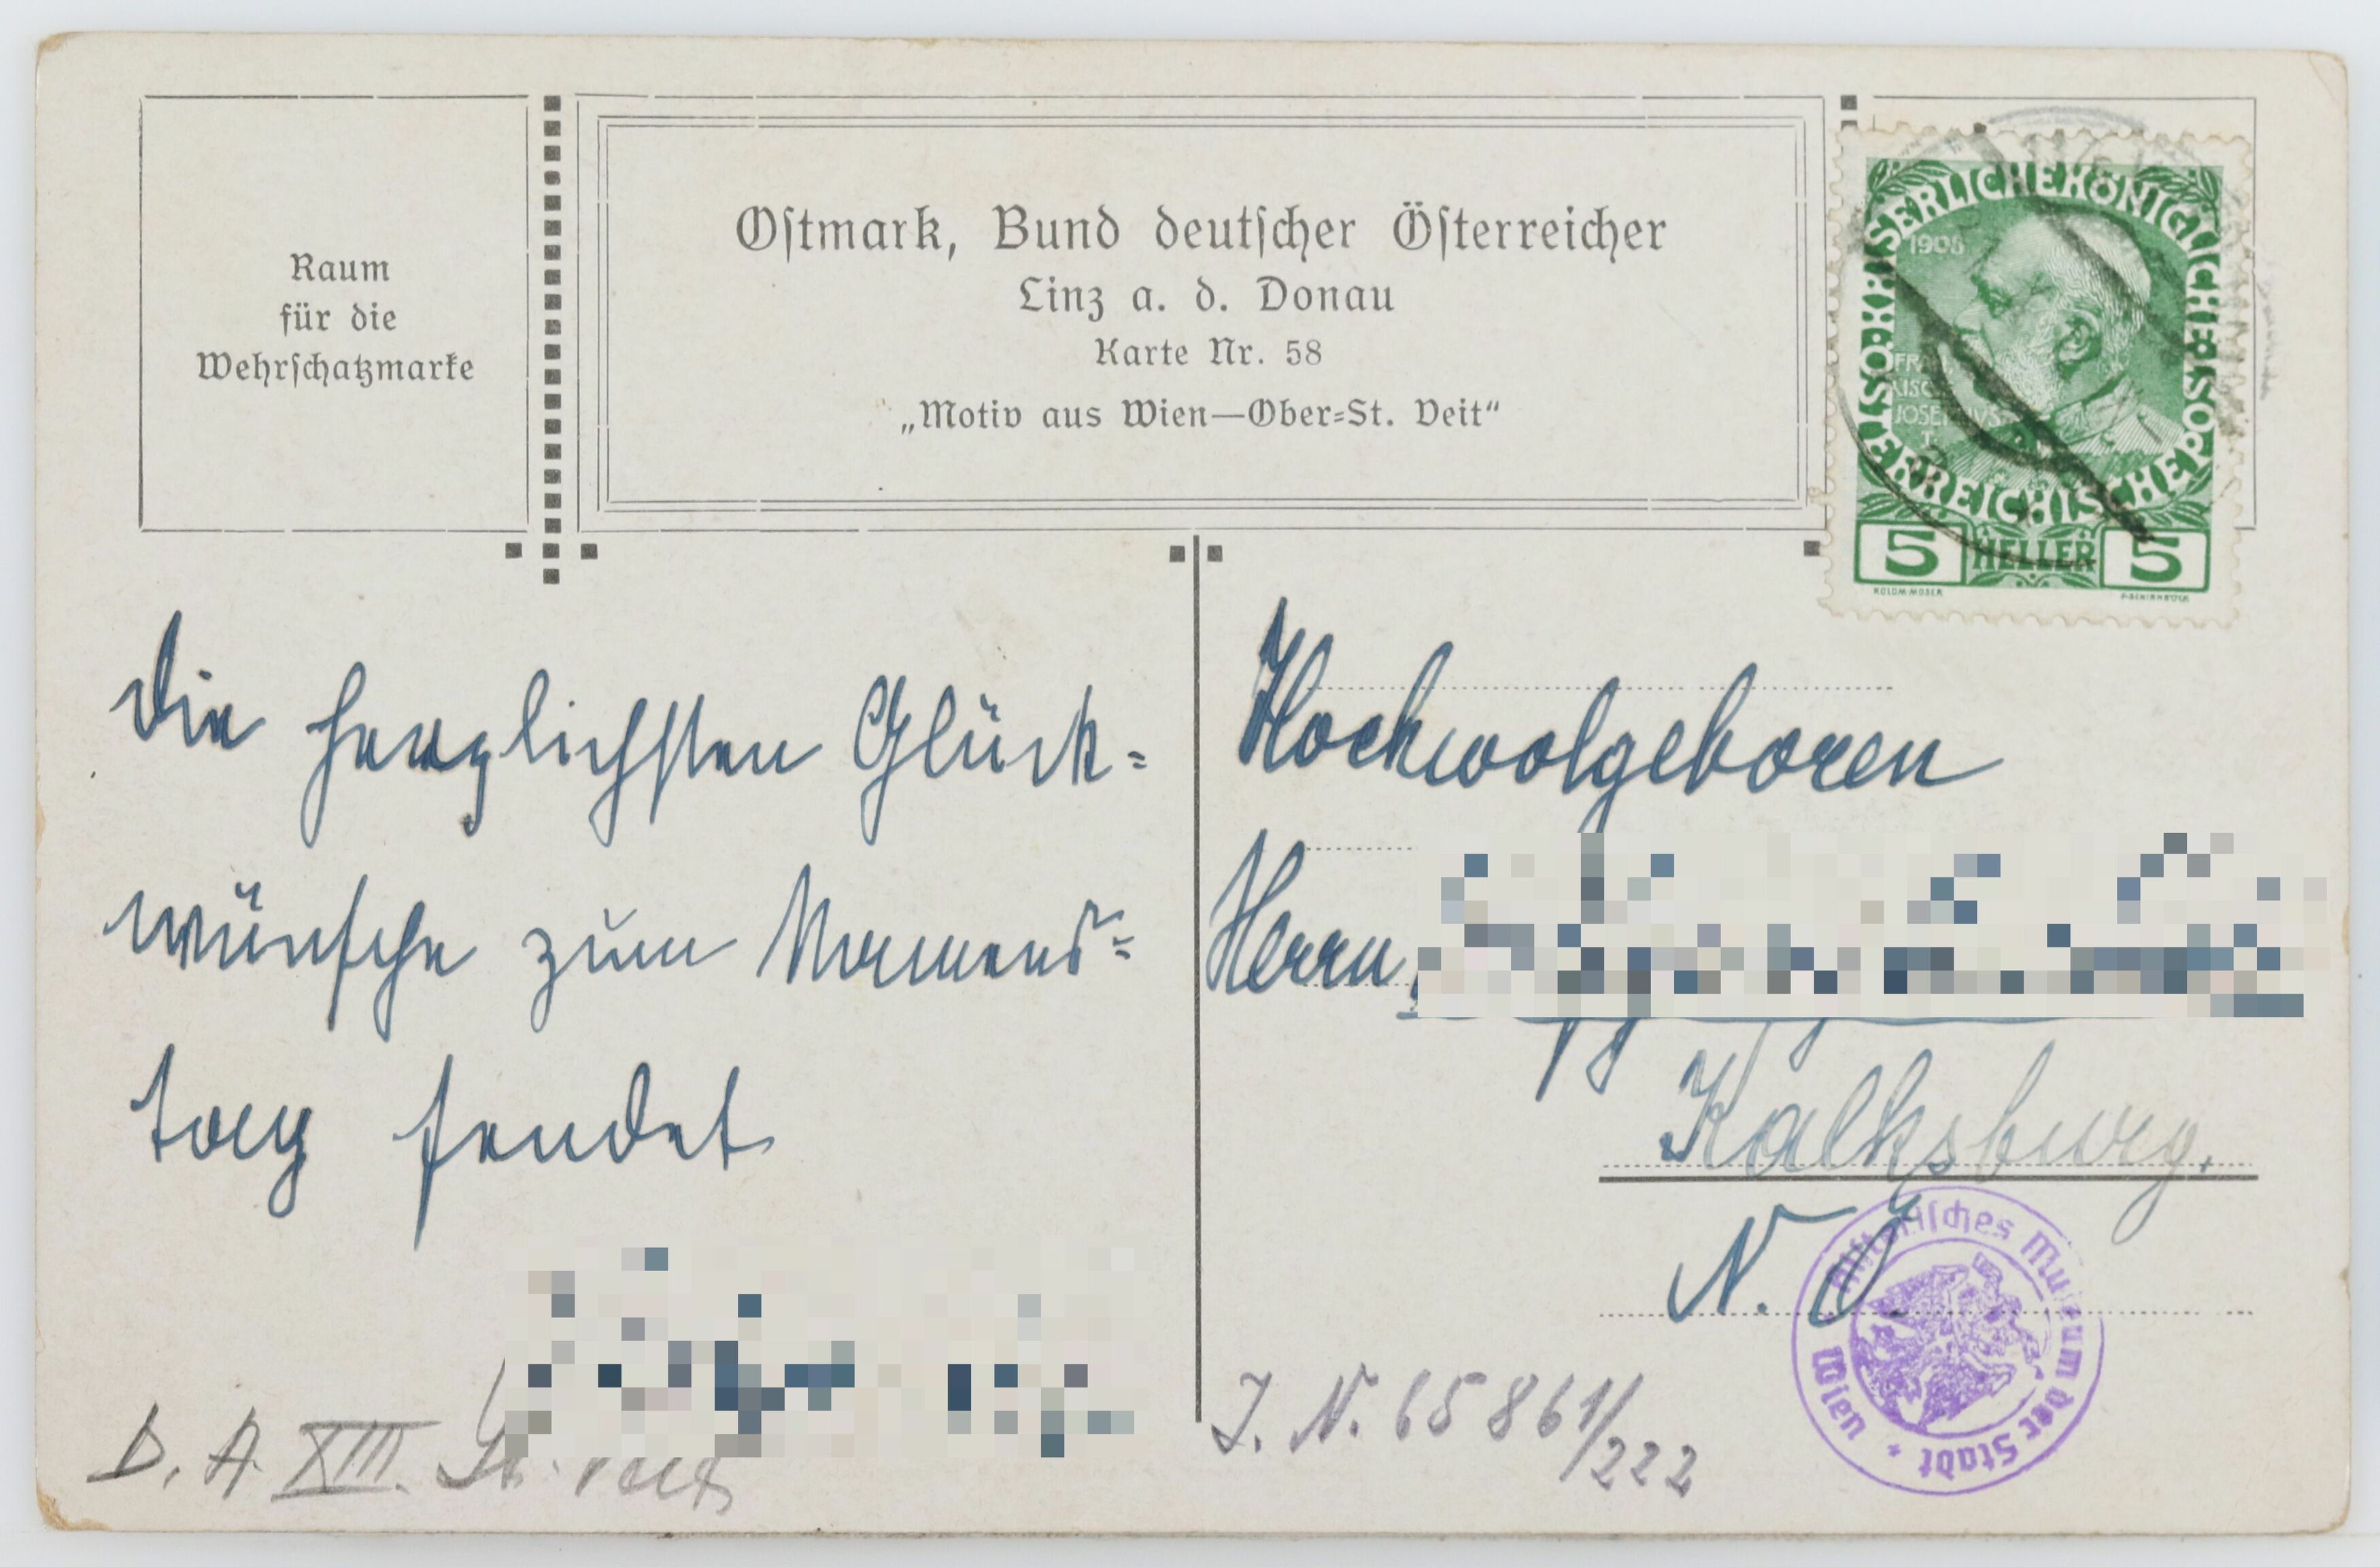 Raum
für die
Wehrschatzmarke
Ostmark, Bund deutscher Österreicher
Linz a. d. Donau
Karte Nr. 58
„Motiv aus Wien—Ober-St. Veit“
KAISERLICHE KÖNIGLICHE ÖSTERREICHISCHE POST
1908
5 HELLER 5
KOLOM.MOSER
Die herzlichsten Glück-
wünsche zum Namens-
tag sendet
Hochwolgeboren
Herrn
Kalksburg.
N. Ö.
Historisches Museum der Stadt * Wien
D. A. XIII.
I. N. 65861/222